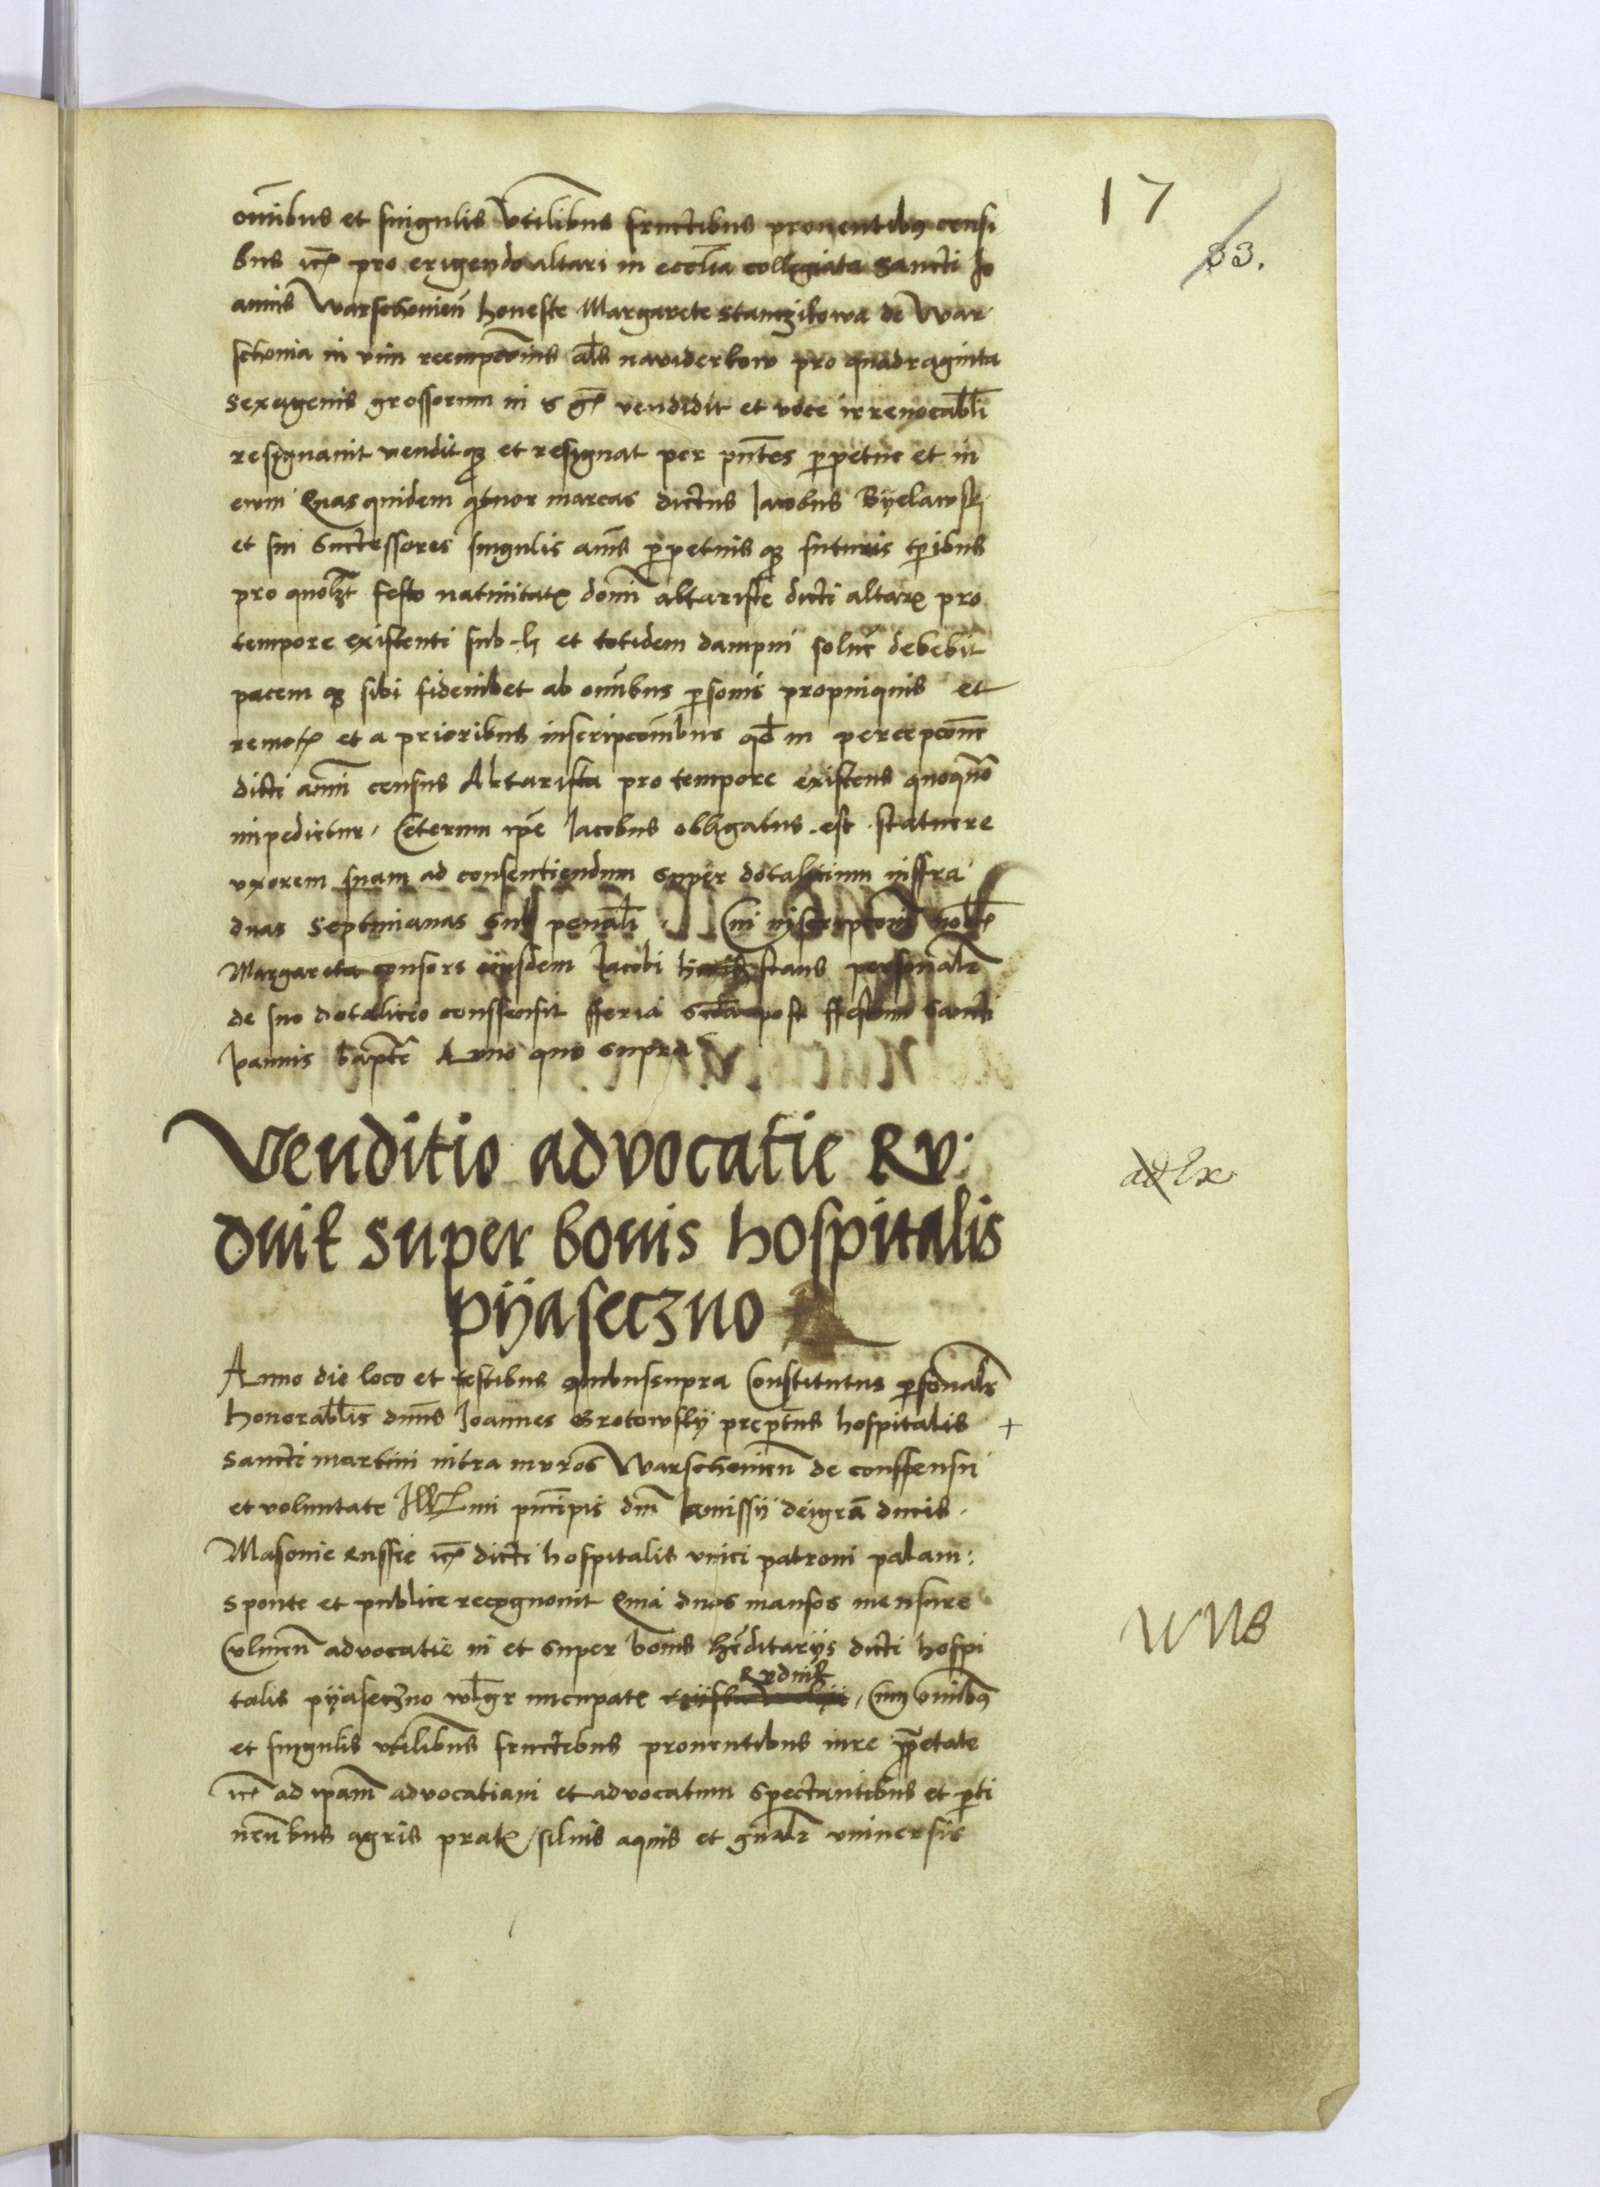 17
33.
om̄ibus et singulis vtilibus fructibus prouentibꝯ censi
bus ꝛc̄ pro erigendo altari in eccl̄ia collegiata Sancti Jo
annis Warschouien̄ honeste Margarete Stanczlikowa de War
schouia in vim reempcōnis al̄s naviderkow pro quadraginta
sexagenis grossorum in vendidit et voce irreuocabl̄i
resignauit venditqꝫ et resignat per pn̄tes ꝑpetue et in
evum Quas quidem qtuor marcas dictus Jacobus Byelawsky
et sui Successores singulis annis ꝑpetuis qꝫ futuris tp̄ribus
pro quolꝫt festo natiuitatꝭ domi altariste dicti altarꝭ pro
tempore existenti sub et totidem dampni solue debebit
pacem qꝫ sibi fideiubet ab om̄ibus ꝑsonis propinquis et
remotꝭ et a prioribus inscripcōnibus qd in percepcōne
dicti annui census Altarista pro tempore existens quoquo
impedietur, Ceterum ip̄e Jacobus obligatus est statuere
vxorem suam ad consentiendum super dotalicium inffra
duas septimanas sub penali Cui inscripcōni nobꝭ
Margareta consors eiusdem Jacobi stans personalꝛ
de suo dotalicio conssensit fferia scda post ffestum Sancti
Joannis bapte Anno quo supra
Venditio advocatie Rv
dnik super bonis hospitalis
pyaseczno
Anno die loco et testibus quibussupra Constitutus ꝑsonalꝛ
honorabl̄is dnus Joannes Grotowsky prep̄tus hospitalis +
Sancti martini intra mvros Warschouien̄ de conssensu
et voluntate Illꝭmi pncipis dni Janussij deigrā ducis
Masouie Russie ꝛc̄ dicti hospitalis vnici patroni palam
sponte et publice recognouit Quia duos mansos mensure
Culmen̄ advocatie in et super bonis hēditarijs dicti hospi
talis pyaseczno wlgr nucupatꝭ Rvdnik, Cum omibꝯ
et singulis vtilibus fructibus prouentibus iure ꝓetate
ꝛc̄ ad ipam advocatiam et advocatum spectantibus et ꝑti
nentibus agris pratꝭ siluis aquis et gnalꝛ vniuersis
ad Ex